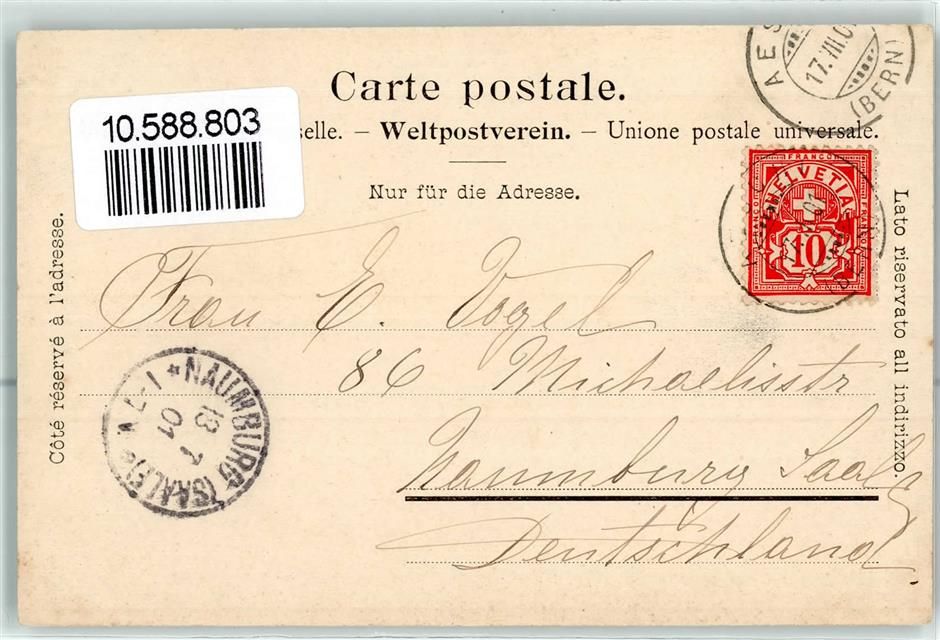 Carte postale.
10.588.803
selle. – Weltpostverein. – Unione postale universale.
Nur für die Adresse.
Côté réservé à l'adresse.
Lato riservato all indirizzo.
AES
17.VII.0
(BERN)
FRANCO
HELVETIA
FRANCO
FRANCO
10
Frau E. Vogel
86 Michaelisstr
Naumburg Saale
Deutschland
* NAUMBURG (SAALE) *
13 7
01